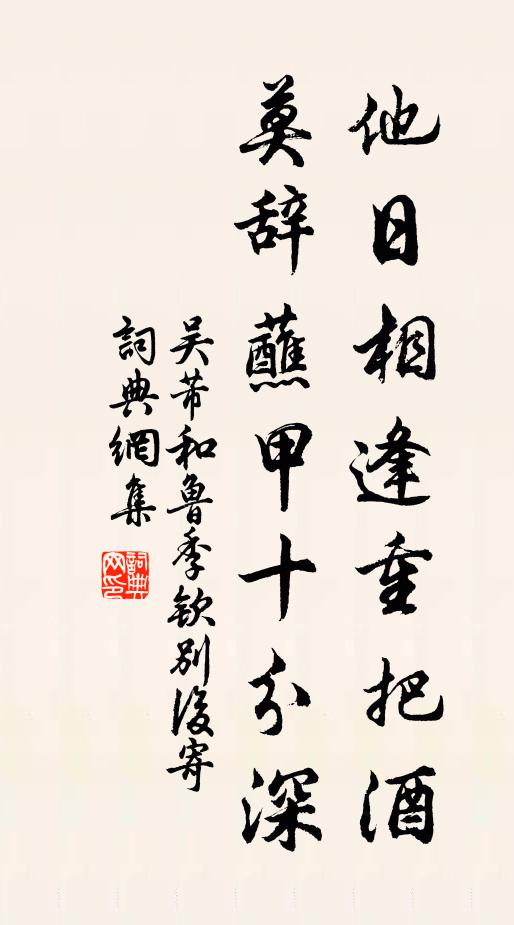 他日相逢重把酒
莫辞蘸甲十分深
吴芾和鲁季钦别後寄
詞典網集
詞典网印